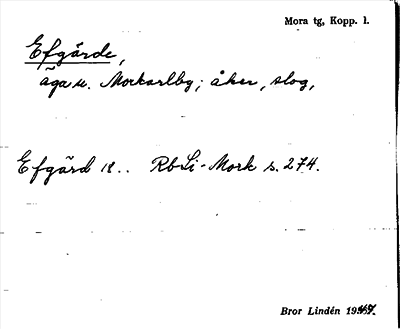 Mora tg, Kopp. l.
Efgärde,
äga u. Morkarlby; åker, slog,
Efgärd 18.. RbLi-Mork s. 274.
Bror Lindén 19